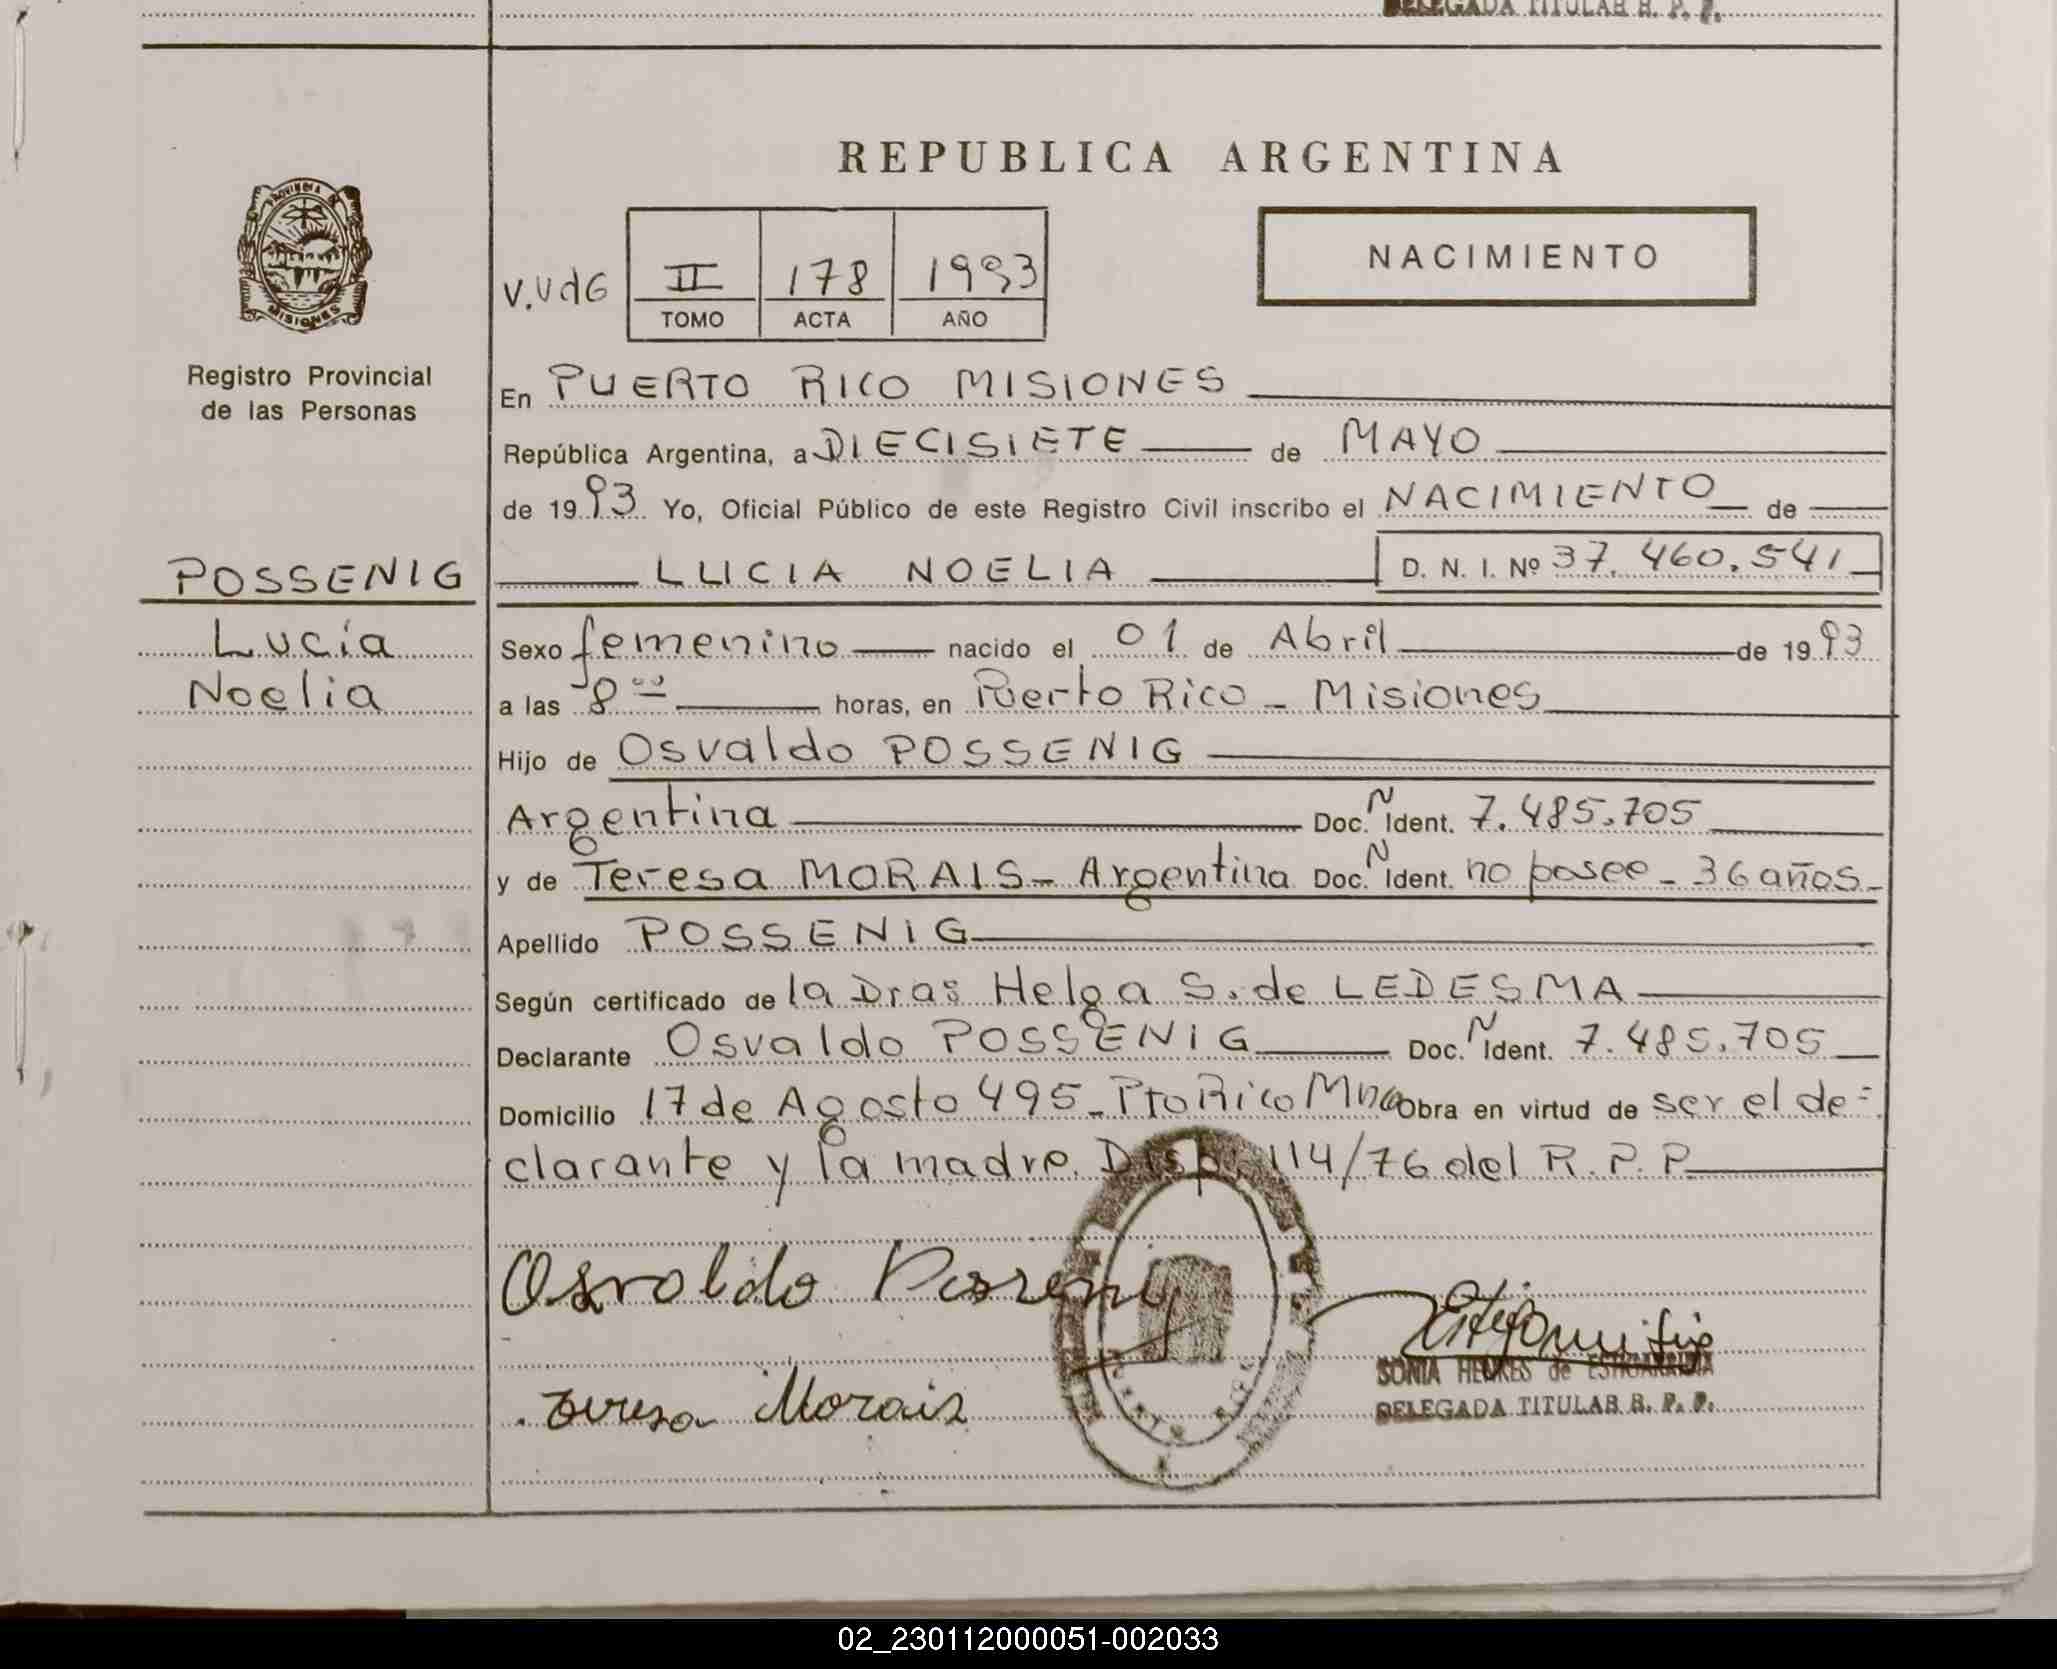 DELEGADA TITULAR R. P. P.
REPUBLICA ARGENTINA
PROVINCIA DE
MISIONES
Registro Provincial
de las Personas
V.UdG
II 178 1993
TOMO ACTA AÑO
NACIMIENTO
En PUERTO RICO MISIONES
República Argentina, a DIECISIETE de MAYO
de 1993 Yo, Oficial Público de este Registro Civil inscribo el NACIMIENTO de
POSSENIG
LUCIA NOELIA D. N. I. Nº 37.460.541
Lucía
Noelia
Sexo femenino nacido el 01 de Abril de 1993
a las 8 00 horas, en Puerto Rico - Misiones
Hijo de Osvaldo POSSENIG
Argentina Doc. N Ident. 7.485.705
y de Teresa MORAIS - Argentina Doc. N Ident. no posee - 36 años -
Apellido POSSENIG
Según certificado de la Dra: Helga S. de LEDESMA
Declarante Osvaldo POSSENIG Doc. N Ident. 7.485.705
Domicilio 17 de Agosto 495 - Pto Rico Mnes Obra en virtud de ser el de=
clarante y la madre. Disp. 114/76 del R.P.P.
Osvaldo Possenig
Teresa Morais
SONIA HENKES de
DELEGADA TITULAR R. P. P.
02_230112000051-002033